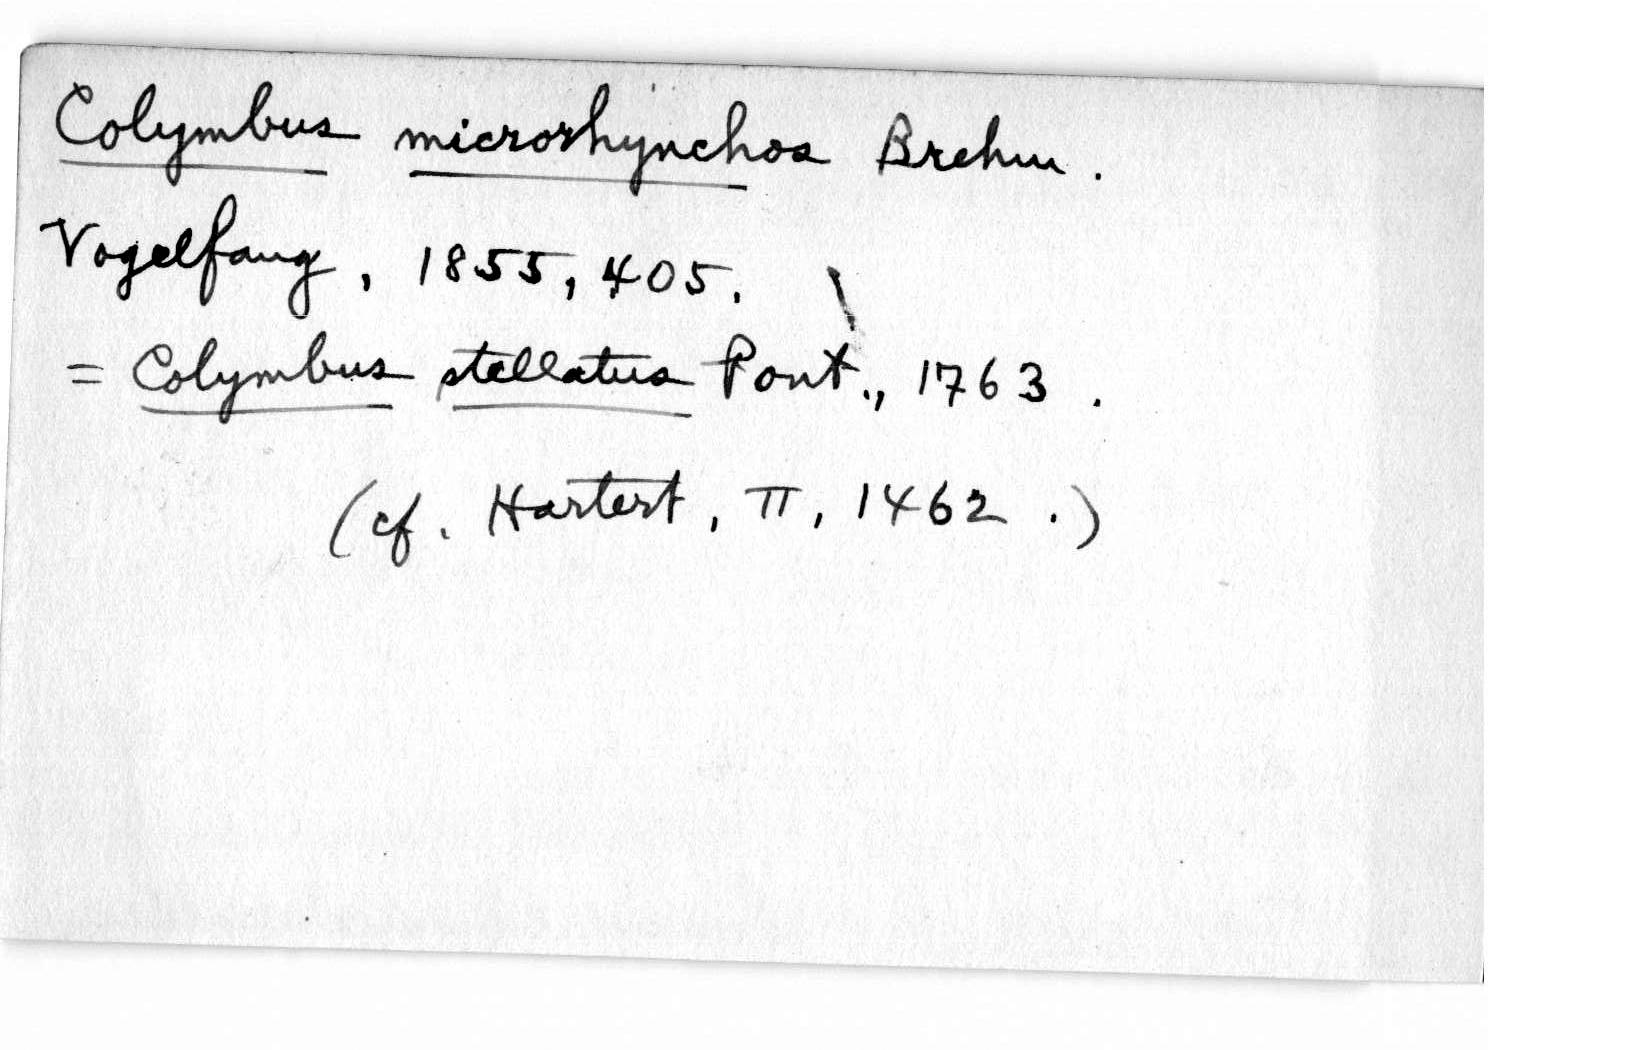 Colymbus microrhynchos Brehm.
Vogelfang, 1855, 405.
= Colymbus stellatus Pont., 1763.
(cf. Hartert, II, 1462.)